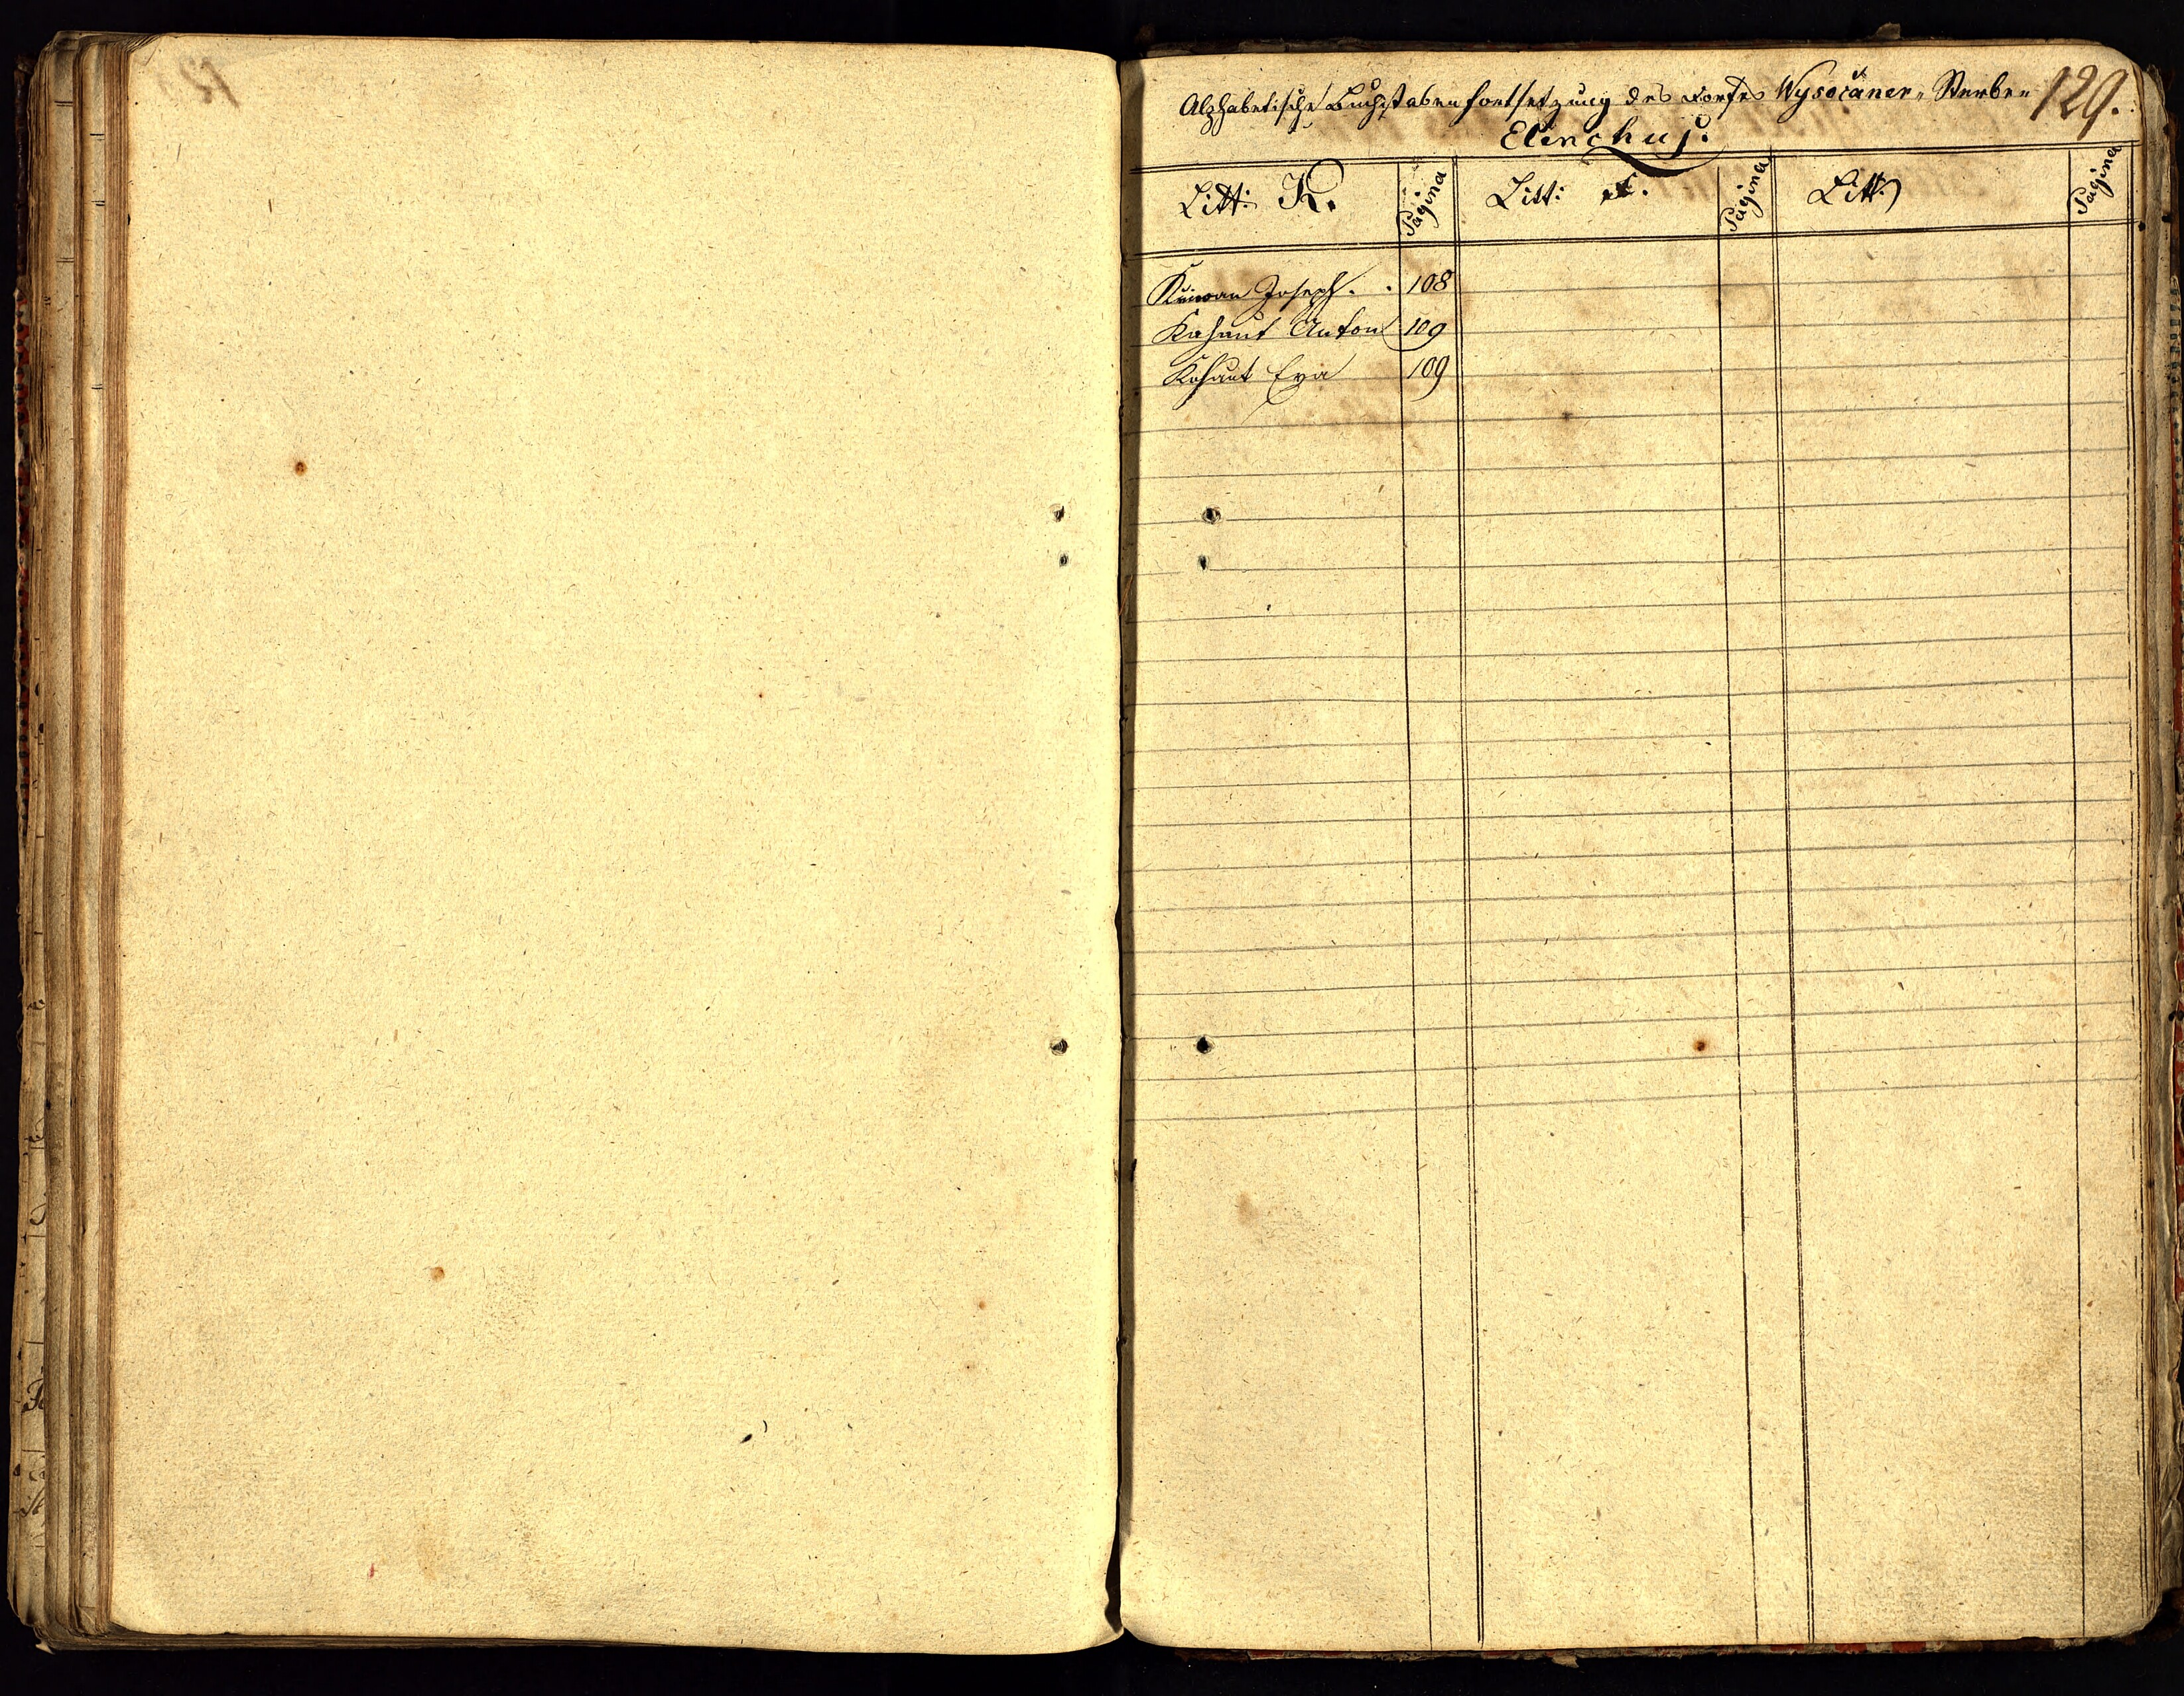 Alphabetische Buchstabenfortsetzung des Dorfes Wysočaner Sterbe
129.
Elenchus.
Litt: K. Pagina Litt: Pagina Litt: Pagina
Joseph. . 108
Kohaut Anton 109
Kohaut Eva 109